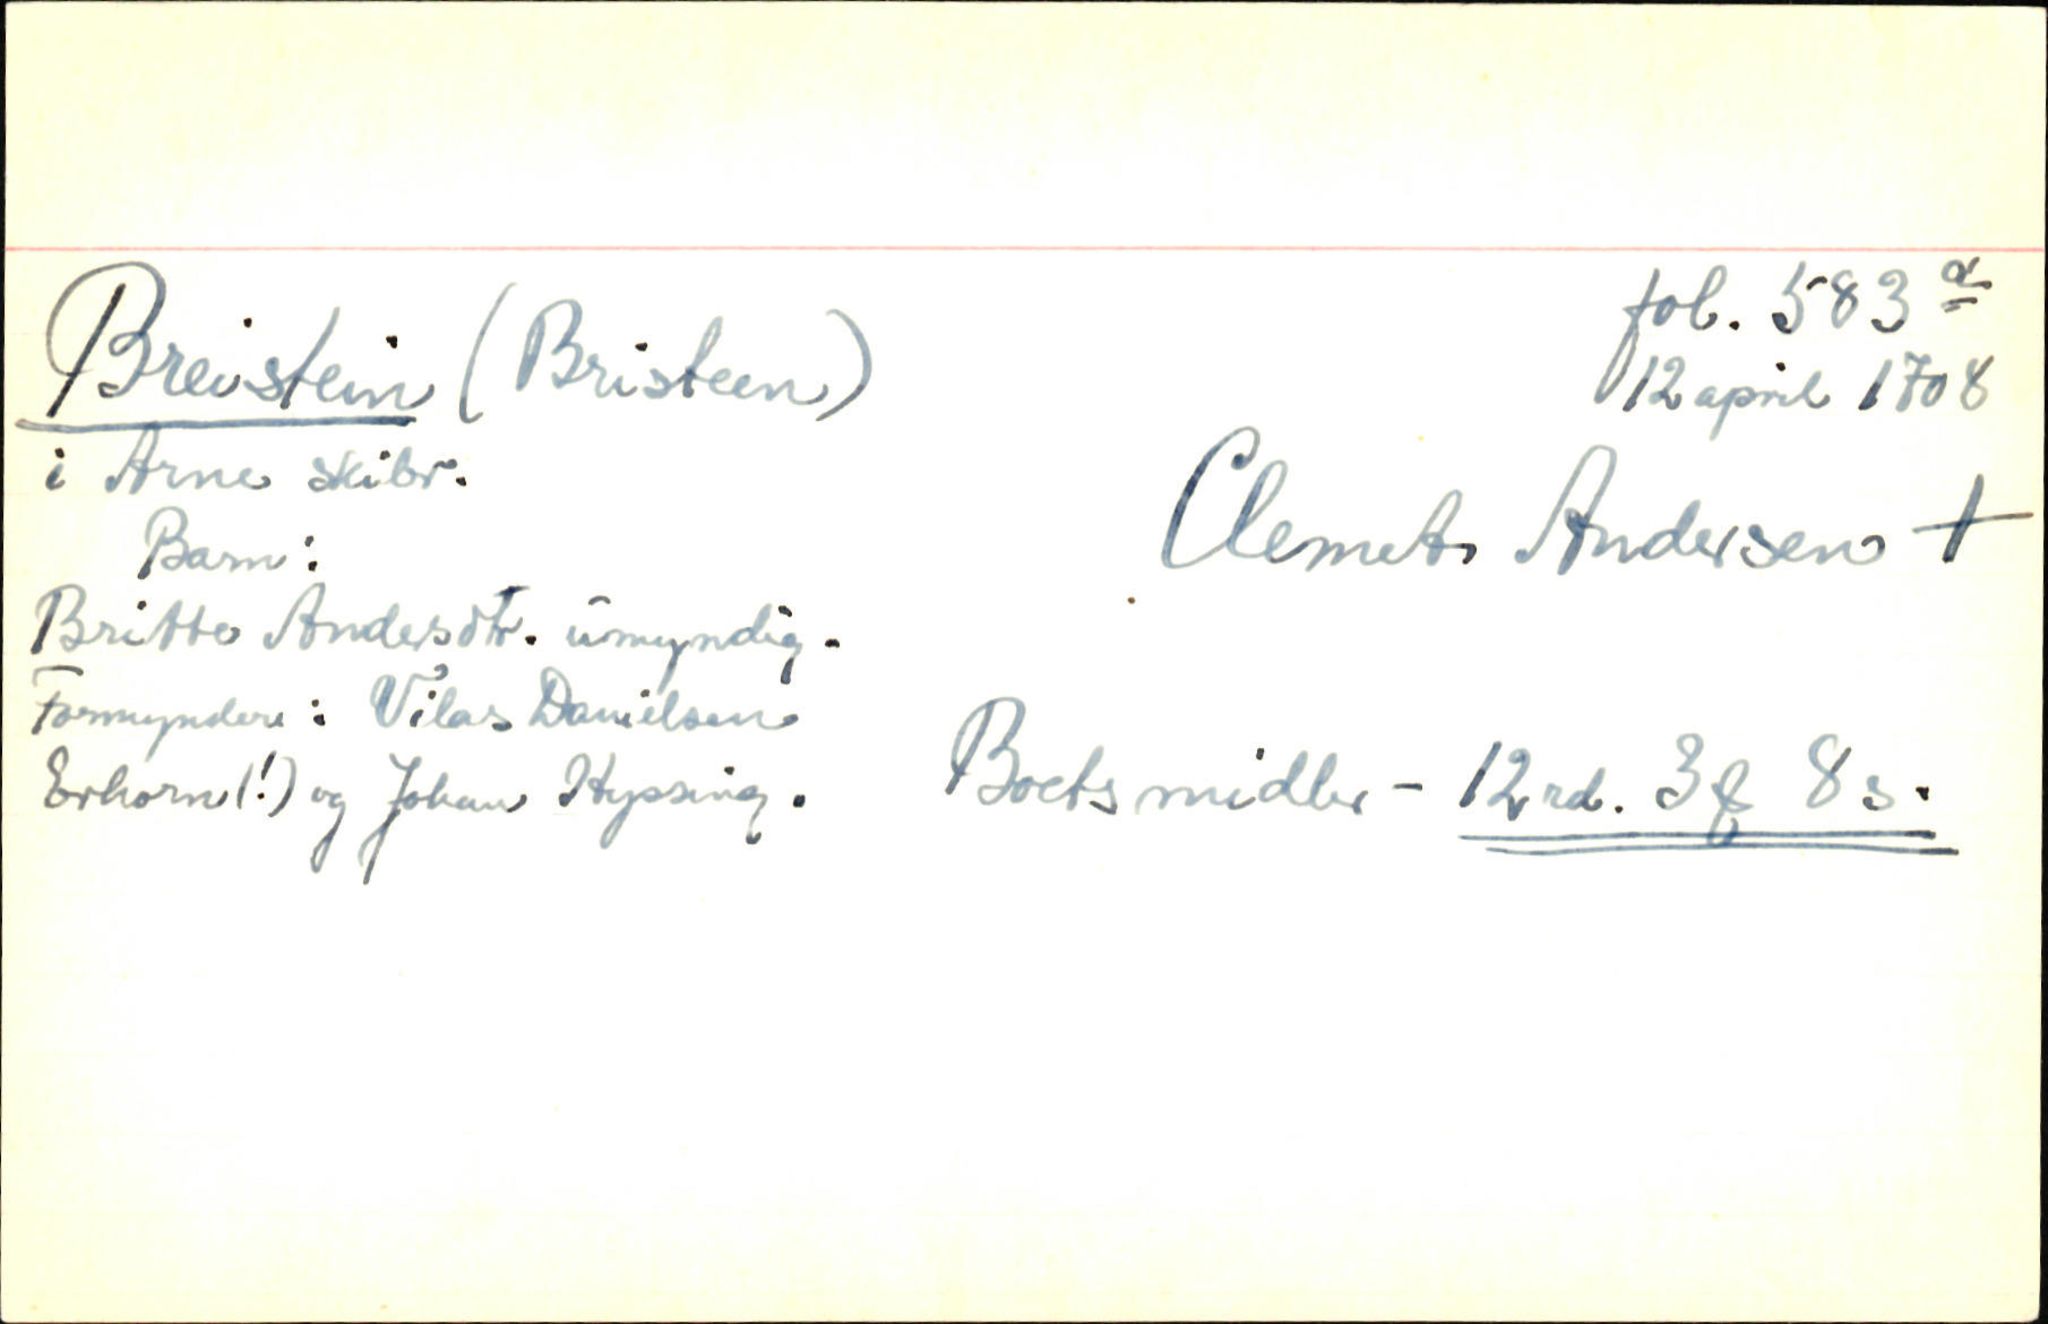 fol. 583 a
Breistein (Bristeen)
12 april 1708
i Arne skibr.
Clemet Andersen +
Barn:
Britte Andersdtr. umyndig.
Formyndere: Vilas Danielsen
Erhorn(!) og Johan Hypsing.
Boets midler - 12 rd. 3 f 8 s.